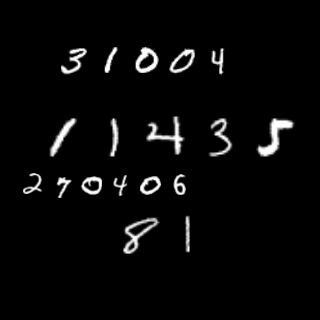 31004
11435
270406
81